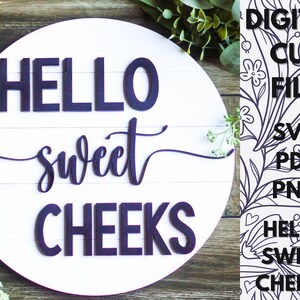 HELLO
sweet
CHEEKS
DIGIT
CU
FIL
SV
PD
PN
HEL
SWE
CHEE